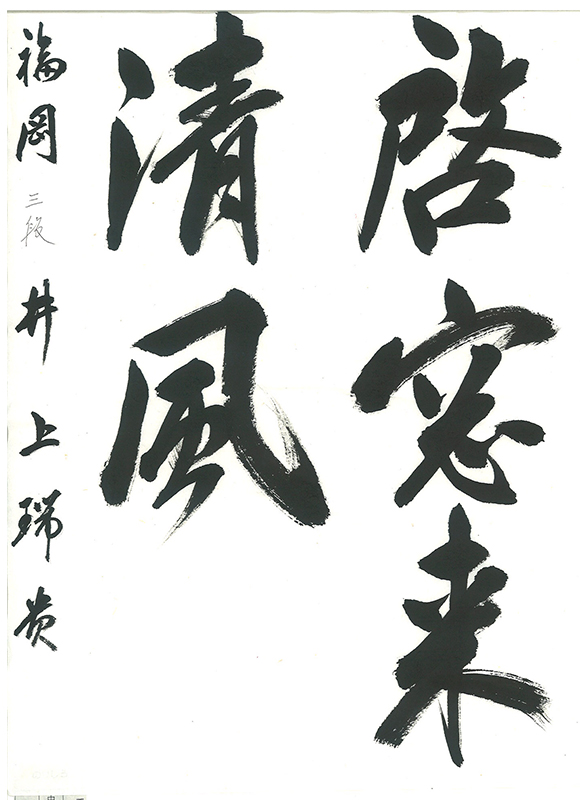 啓窓来
清風
福岡 三段 井上瑞貴